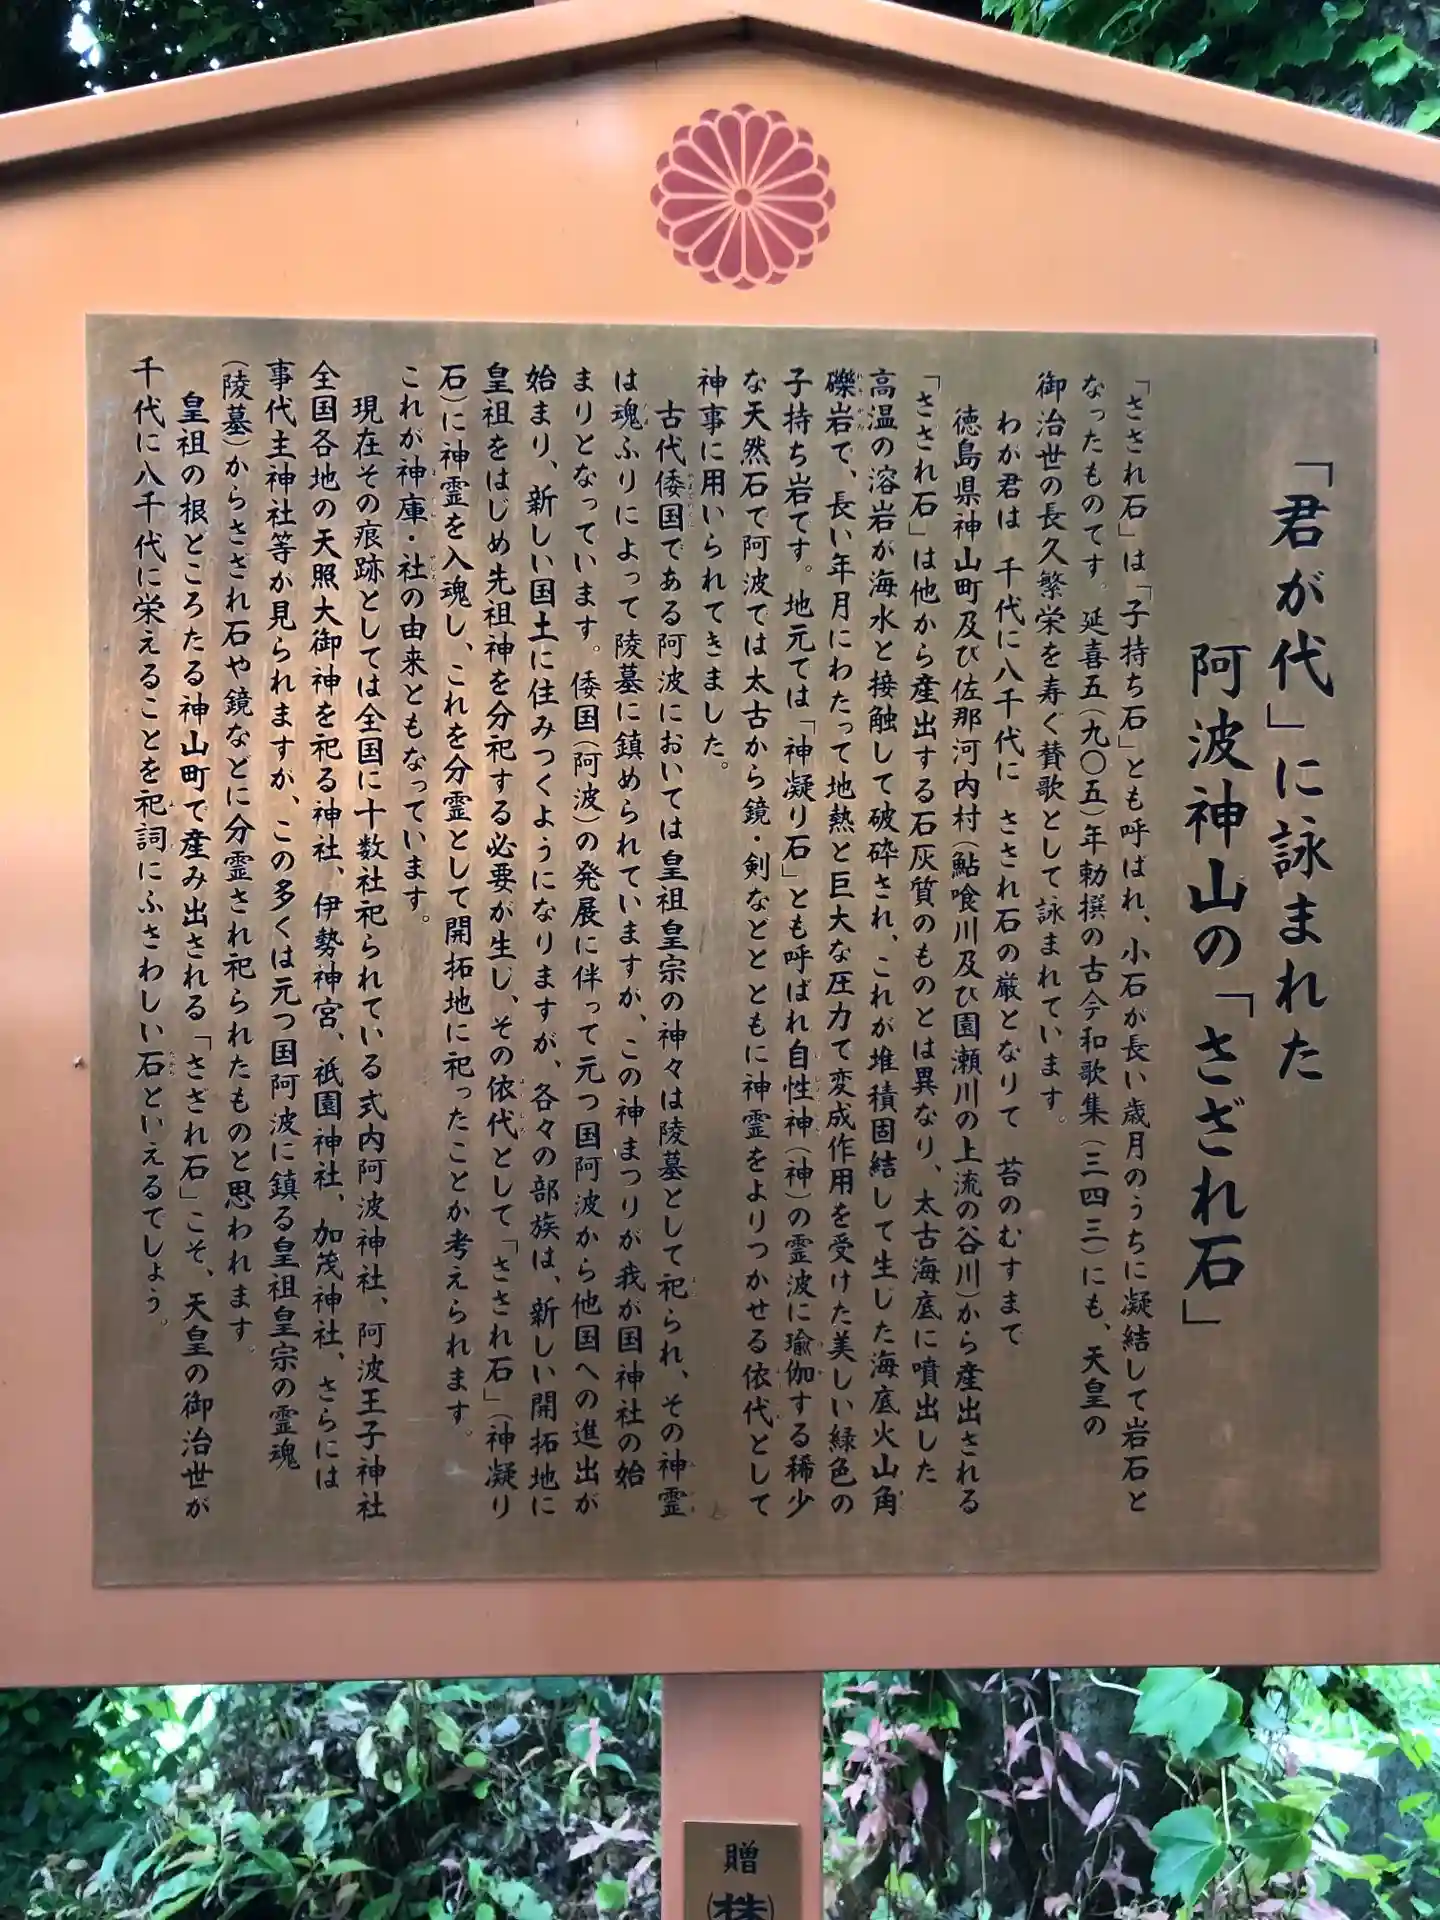 「君が代」に詠まれた
阿波神山の「さざれ石」
「さざれ石」は「子持ち石」とも呼ばれ、小石が長い歳月のうちに凝結して岩石と
なったものてす。延喜五(九〇五)年勅撰の古今和歌集(三四三)にも、天皇の
御治世の長久繁栄を寿ぐ賛歌として詠まれています。
わが君は 千代に八千代に さざれ石の巌となりて 苔のむすまて
徳島県神山町及び佐那河内村(鮎喰川及び園瀬川の上流の谷川)から産出される
「さざれ石」は他から産出する石灰質のものとは異なり、太古海底に噴出した
高温の溶岩が海水と接触して破砕され、これが堆積固結して生じた海底火山角
礫岩で、長い年月にわたって地熱と巨大な圧力て変成作用を受けた美しい緑色の
子持ち岩てす。地元ては「神凝り石」とも呼ばれ自性神(神)の霊波に瑜伽する稀少
な天然石て阿波では太古から鏡・剣などとともに神霊をよりつかせる依代として
神事に用いられてきました。
古代倭国である阿波においては皇祖皇宗の神々は陵墓として祀られ、その神霊
は魂ふりによって陵墓に鎮められていますが、この神まつりが我が国神社の始
まりとなっています。倭国(阿波)の発展に伴って元つ国阿波から他国への進出が
始まり、新しい国土に住みつくようになりますが、各々の部族は、新しい開拓地に
皇祖をはじめ先祖神を分祀する必要が生し、その依代として「さざれ石」(神凝り
石)に神霊を入魂し、これを分霊として開拓地に祀ったことか考えられます。
これが神庫・社の由来ともなっています。
現在その痕跡としては全国に十数社祀られている式内阿波神社、阿波王子神社
全国各地の天照大御神を祀る神社、伊勢神宮、祇園神社、加茂神社、さらには
事代主神社等か見られますが、この多くは元つ国阿波に鎮る皇祖皇宗の霊魂
(陵墓)からさざれ石や鏡などに分霊され祀られたものと思われます。
皇祖の根ところたる神山町で産み出される「さざれ石」こそ、天皇の御治世が
千代に八千代に栄えることを祀詞にふさわしい石といえるてしょう。
贈
(株)